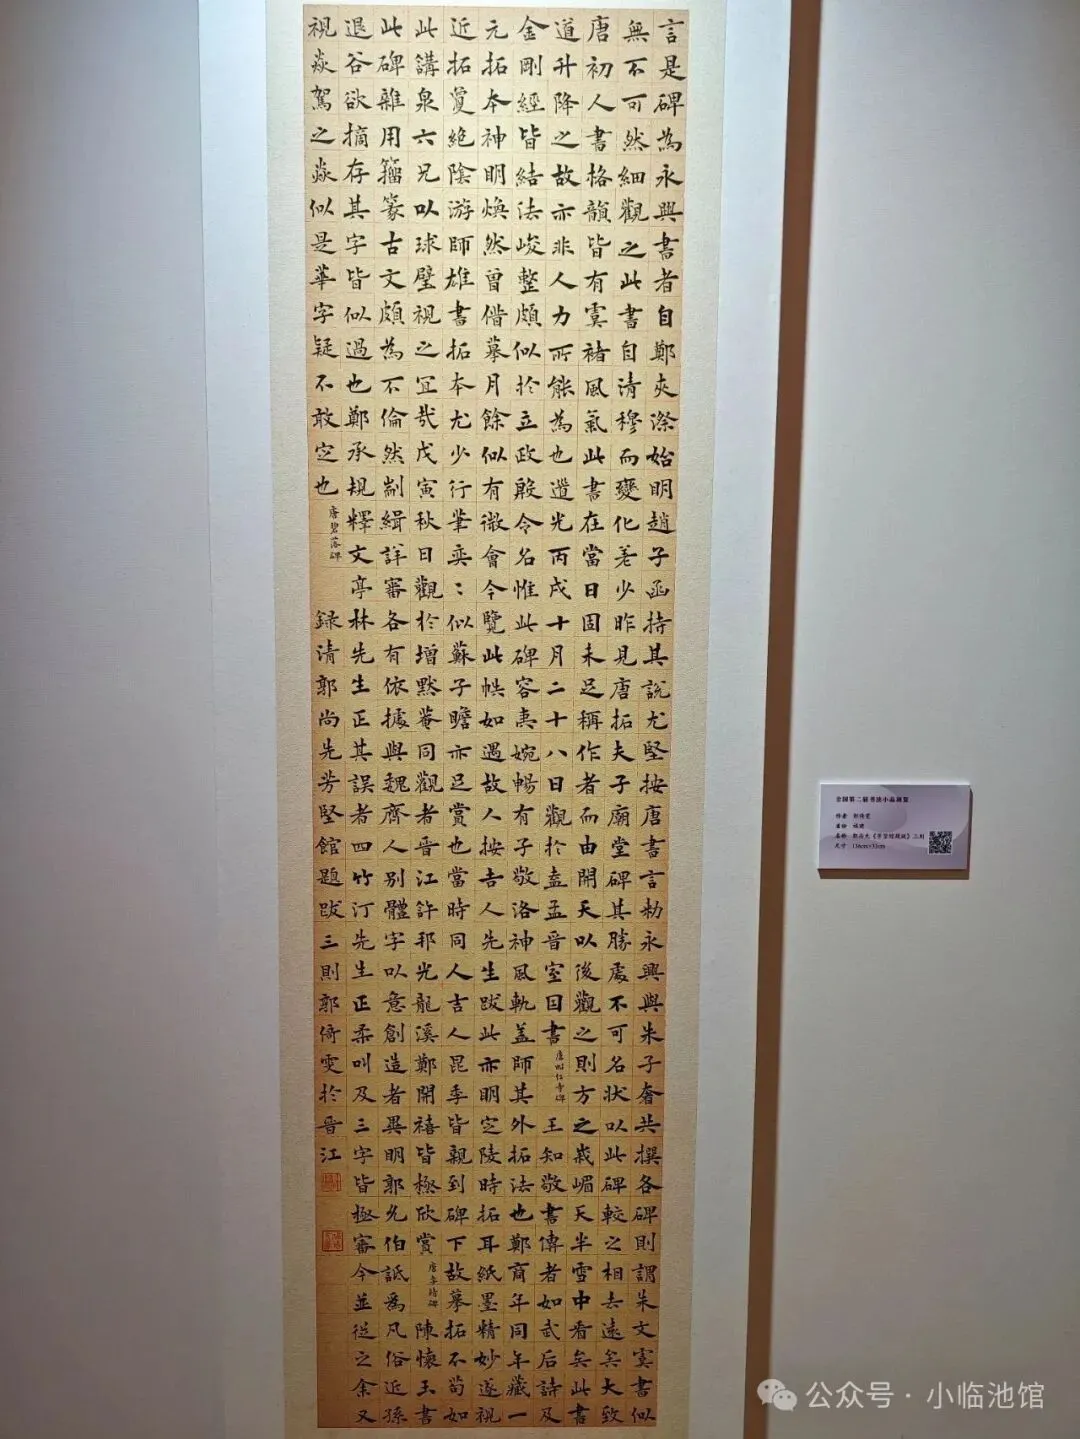 言是碑為永興書者自鄭夾漈始明趙子函持其說尤堅按唐書言勑永興與朱子奢共撰各碑則謂朱文虞書似
無不可然細觀之此書自清穆而變化差少昨見唐拓夫子廟堂碑其勝處不可名狀以此碑較之相去遠矣大致
唐初人書格韻皆有虞褚風氣此書在當日固未足稱作者而由開天以後觀之則方之嵋天半雪中看矣此書
道升降之故亦非人力所能為也道光丙戌十月二十八日觀於盍孟晉室因書 唐昭仁寺碑 王知敬書傳者如武后詩及
金剛經皆結法峻整頗似於立政殷令名惟此碑容與婉暢有子敬洛神風軌蓋師其外拓法也鄭商年同年藏一
元拓本神明煥然曾借摹月餘似有微會今覽此帙如遇故人按吉人先生跋此亦明定陵時拓耳紙墨精妙遂視
近拓夐絕陰游師雄書拓本尤少行筆奕〻似蘇子瞻亦足賞也當時同人吉人昆季皆親到碑下故摹拓不苟如
此講泉六兄以球璧視之宜哉戊寅秋日觀於增默菴同觀者晉江許邦光龍溪鄭開禧皆極欣賞 唐李靖碑 陳懷玉書
此碑雜用籀篆古文頗為不倫然剬緝詳審各有依據與魏齊人別體字以意創造者異明郭允伯詆為凡俗近孫
退谷欲摘存其字皆似過也鄭承規釋文亭林先生正其誤者四竹汀先生正柔叫及三字皆極審今並從之余又
視焱駕之焱似是華字疑不敢定也 唐碧落碑 錄清郭尚先芳堅館題跋三則郭倚雯於晉江
全国第二届书法小品展览
作者 郭倚雯
省份 福建
名称 郭尚先《芳坚馆题跋》三则
尺寸 136cm×33cm
公众号·小临池馆